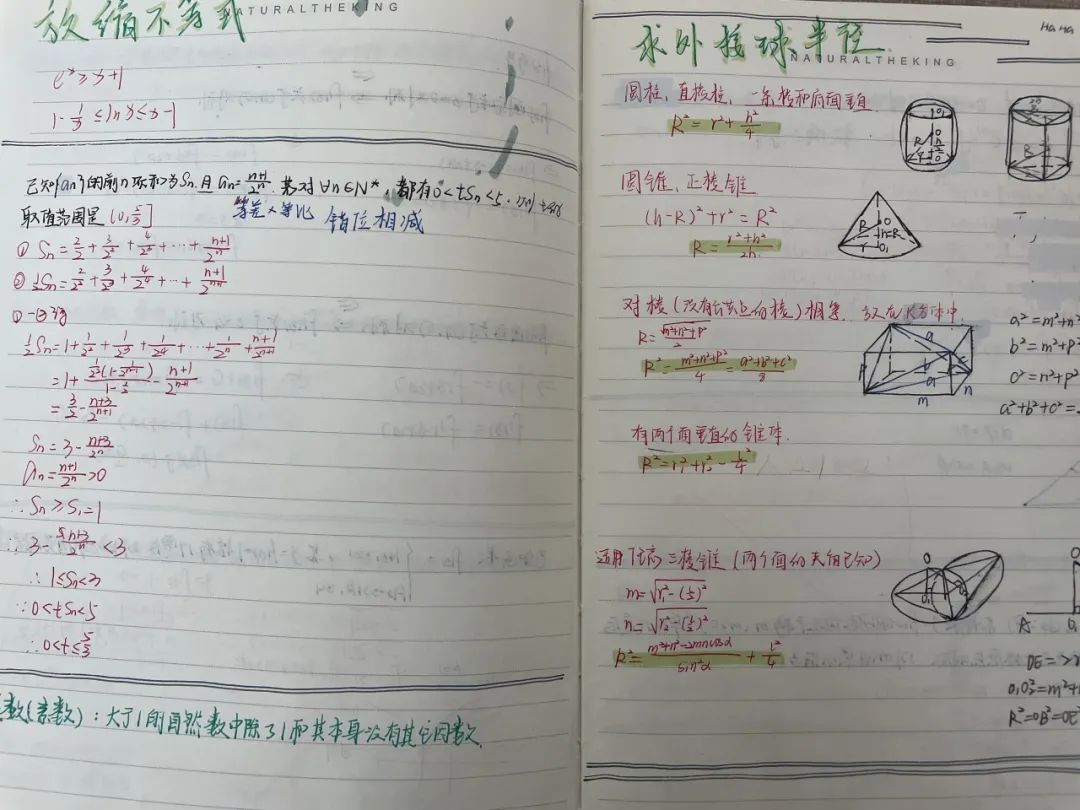 放缩不等式
NATURALTHEKING
e^x ≥ x+1
1-1/x ≤ lnx ≤ x-1
已知{an}的前n项和为Sn, 且 an=(n+1)/2^n, 若对∀n∈N*, 都有0<tSn<5, 则t的
取值范围是 (0, 5/3]
等差×等比 错位相减
① Sn=2/2+3/2^2+4/2^3+…+(n+1)/2^n
② 1/2Sn=2/2^2+3/2^3+4/2^4+…+(n+1)/2^(n+1)
①-②得
1/2Sn=1+1/2^2+1/2^3+1/2^4+…+1/2^n+(n+1)/2^(n+1)
-(n+1)/2^(n+1)
=3/2-(n+3)/2^(n+1)
Sn=3-(n+3)/2^n
an=(n+1)/2^n>0
∴Sn≥S1=1
<3
∴1≤Sn<3
∵0<tSn<5
∴0<t≤5/3
数(素数):大于1的自然数中除了1和其本身没有其它因数
求外接球半径
NATURALTHEKING
HaHa
圆柱,直棱柱,一条棱和底面垂直
R²=r²+h²/4
圆锥、正棱锥
(h-R)²+r²=R²
R=(r²+h²)/2h
对棱(没有公共点的棱)相等,放在长方体中
R²=(m²+n²+p²)/4=(a²+b²+c²)/8
a²=m²+n²
b²=m²+p²
c²=n²+p²
a²+b²+c²=
有两个面垂直的锥体.
R²=r₁²+r₂²-l²/4
适用 三棱锥(两个面的夹角已知)
m=√(r₁²-(l/2)²)
n=√(r₂²-(l/2)²)
R²=(m²+n²-2mncosα)/sin²α+l²/4
OE=
O₁O²=m²+
R²=OB²=OE²